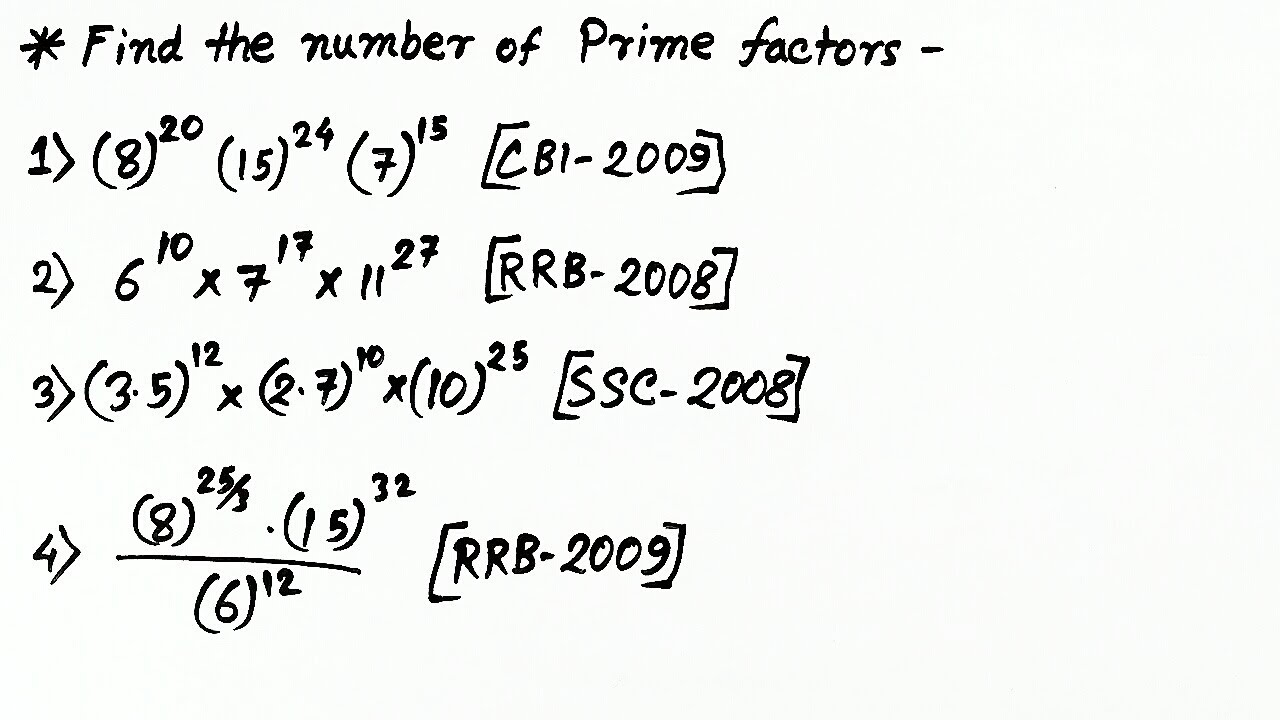 * Find the number of Prime factors -
1) (8)^20 (15)^24 (7)^15 [CBI-2009]
2) 6^10 x 7^17 x 11^27 [RRB-2008]
3) (3.5)^12 x (2.7)^10 x (10)^25 [SSC-2008]
4) (8)^25/3 . (15)^32 [RRB-2009]
(6)^12